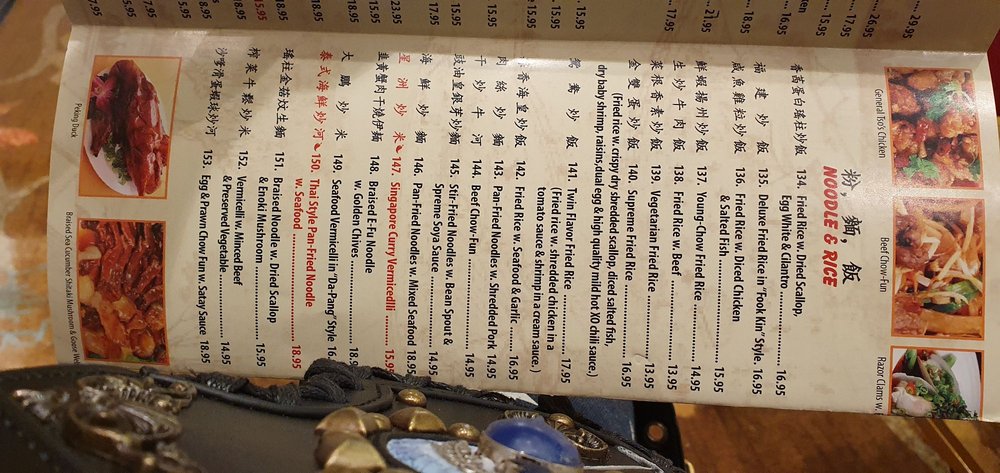 General Tso's Chicken
Beef Chow-Fun
Razor Clams w.
粉，麵，飯
NOODLE & RICE
香茜蛋白瑤柱炒飯 134. Fried Rice w. Dried Scallop,
Egg White & Cilantro ...... 16.95
福建炒飯 135. Deluxe Fried Rice in "Fook Kin" Style. 16.95
鹹魚雞粒炒飯 136. Fried Rice w. Diced Chicken
& Salted Fish ...... 15.95
鮮蝦揚州炒飯 137. Young-Chow Fried Rice ...... 14.95
生炒牛肉飯 138. Fried Rice w. Beef ...... 13.95
菜根香素炒飯 139. Vegetarian Fried Rice ...... 13.95
金雙蛋炒飯 140. Supreme Fried Rice ...... 16.95
(Fried rice w. crispy dry shredded scallop, diced salted fish,
dry baby shrimp, raisins, dual egg & high quality mild hot XO chili sauce.)
鴛鴦炒飯 141. Twin Flavor Fried Rice ...... 17.95
(Fried rice w. shredded chicken in a
tomato sauce & shrimp in a cream sauce.)
香海皇炒飯 142. Fried Rice w. Seafood & Garlic ...... 16.95
肉絲炒麵 143. Pan-Fried Noodles w. Shredded Pork 14.95
干炒牛河 144. Beef Chow-Fun ...... 14.95
豉油皇銀芽炒麵 145. Stir-Fried Noodles w. Bean Spout &
Spreme Soya Sauce ...... 14.95
海鮮炒麵 146. Pan-Fried Noodles w. Mixed Seafood 18.95
星洲炒米 147. Singapore Curry Vermicedlli ...... 15.95
韭黃蟹肉干燒伊麵 148. Braised E-Fu Noodle
w. Golden Chives ...... 18.9
大鵬炒米 149. Seafood Vermicelli in "Da-Pang" Style 16.
泰式海鮮炒河 150. Thai Style Pan-Fried Noodle
w. Seafood ...... 18.95
瑤柱金菇炆生麵 151. Braised Noodle w. Dried Scallop
& Enoki Mushroom ...... 15.95
榨菜牛鬆炆米 152. Vermicelli w. Minced Beef
& Preserved Vegetable ...... 14.95
沙嗲滑蛋蝦球炒河 153. Egg & Prawn Chow Fun w. Satay Sauce 18.95
Peking Duck
Braised Sea Cucumber Shitaki Mushroom & Goose Web
29.95
26.95
17.95
15.95
16.95
15.95
21.95
17.95
15.95
15.95
17.95
15.95
23.95
15.95
18.95
15.95
8.95